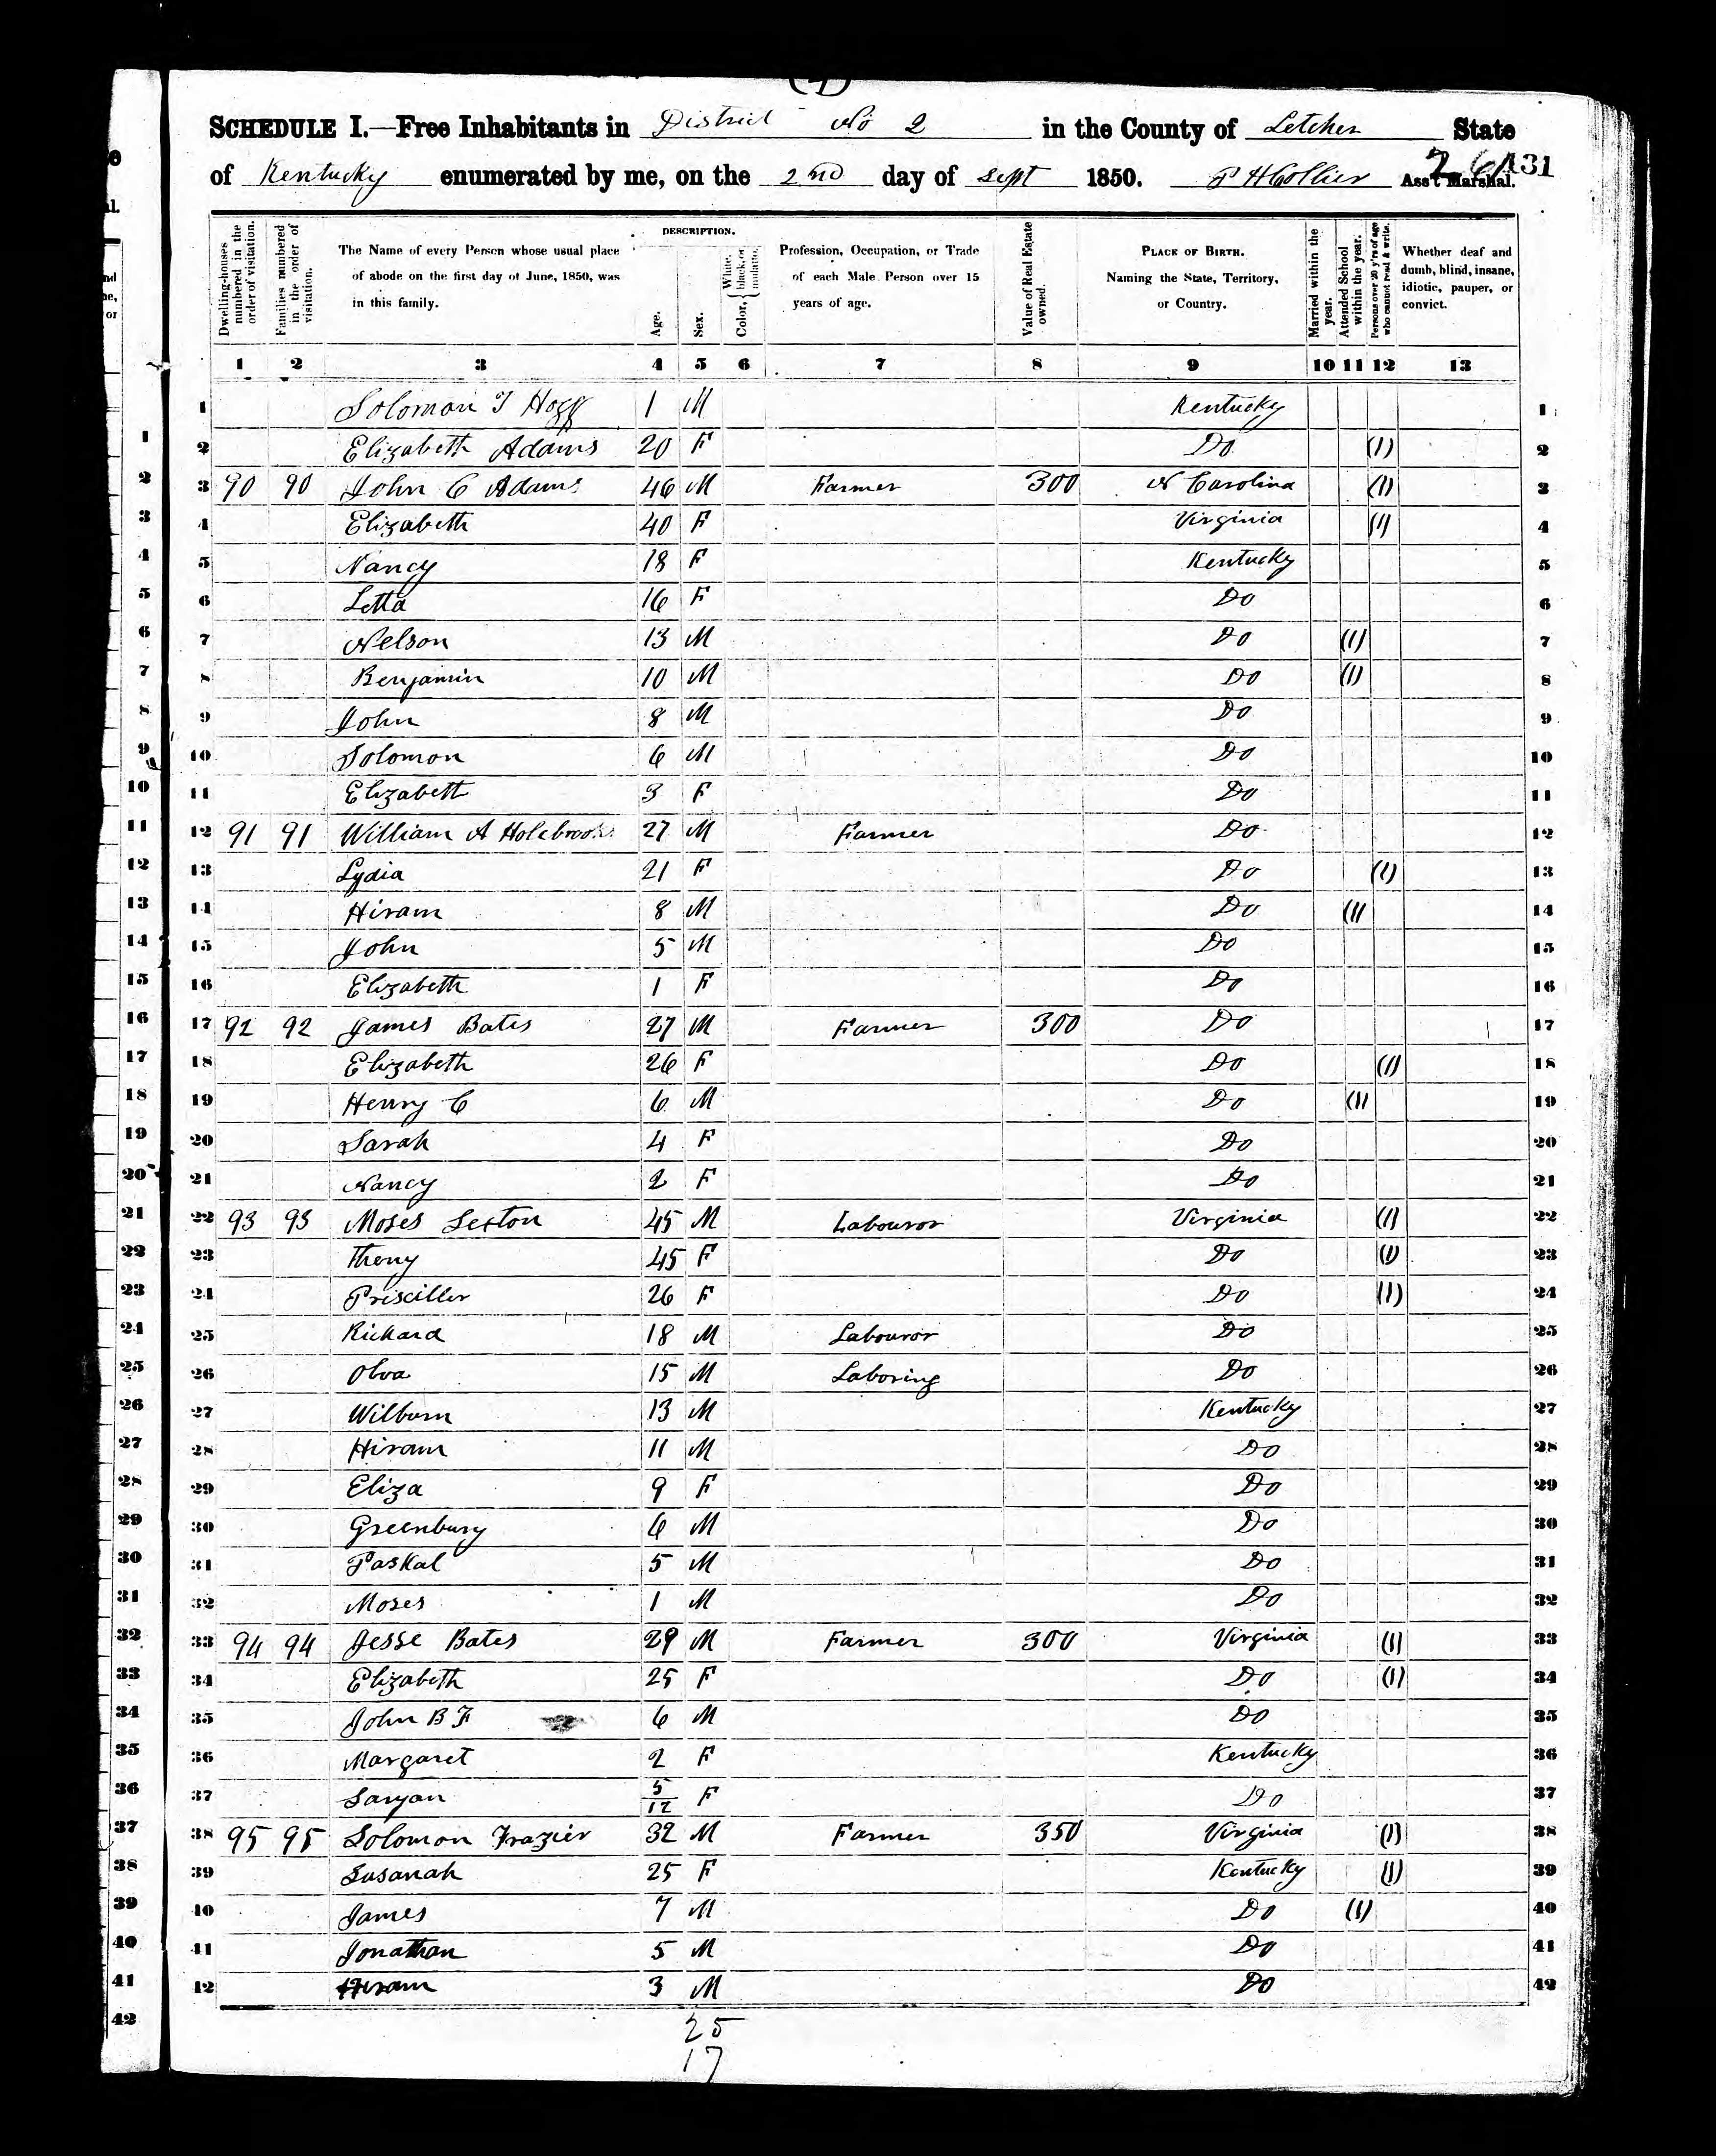 SCHEDULE I.—Free Inhabitants in District No 2 in the County of Letcher State
of Kentucky enumerated by me, on the 2nd day of Sept 1850. P H Collier Ass't Marshal. 131
Dwelling-houses numbered in the order of visitation. Families numbered in the order of visitation. The Name of every Person whose usual place of abode on the first day of June, 1850, was in this family. DESCRIPTION. Age. Sex. Color, White, black, or mulatto. Profession, Occupation, or Trade of each Male Person over 15 years of age. Value of Real Estate owned. PLACE OF BIRTH. Naming the State, Territory, or Country. Married within the year. Attended School within the year. Persons over 20 y'rs of age who cannot read & write. Whether deaf and dumb, blind, insane, idiotic, pauper, or convict.
1 2 3 4 5 6 7 8 9 10 11 12 13
1 Solomon T Hogg 1 M Kentucky 1
2 Elizabeth Adams 20 F Do (1) 2
3 90 90 John C Adams 46 M Farmer 300 N Carolina (1) 3
4 Elizabeth 40 F Virginia (1) 4
5 Nancy 18 F Kentucky 5
6 Letta 16 F Do 6
7 Nelson 13 M Do (1) 7
8 Benjamin 10 M Do (1) 8
9 John 8 M Do 9
10 Solomon 6 M Do 10
11 Elizabett 3 F Do 11
12 91 91 William A Holebrooks 27 M Farmer Do 12
13 Lydia 21 F Do (1) 13
14 Hiram 8 M Do (1) 14
15 John 5 M Do 15
16 Elizabeth 1 F Do 16
17 92 92 James Bates 27 M Farmer 300 Do 17
18 Elizabeth 26 F Do (1) 18
19 Henry C 6 M Do (1) 19
20 Sarah 4 F Do 20
21 Nancy 2 F Do 21
22 93 93 Moses Sexton 45 M Labouror Virginia (1) 22
23 Theny 45 F Do (1) 23
24 Prisciller 26 F Do (1) 24
25 Richard 18 M Labouror Do 25
26 Olva 15 M Laboring Do 26
27 Wilburn 13 M Kentucky 27
28 Hiram 11 M Do 28
29 Eliza 9 F Do 29
30 Greenbury 6 M Do 30
31 Paskal 5 M Do 31
32 Moses 1 M Do 32
33 94 94 Jesse Bates 29 M Farmer 300 Virginia (1) 33
34 Elizabeth 25 F Do (1) 34
35 John B F 6 M Do 35
36 Margaret 2 F Kentucky 36
37 Saryan 5/12 F Do 37
38 95 95 Solomon Frazier 32 M Farmer 350 Virginia (1) 38
39 Susanah 25 F Kentucky (1) 39
40 James 7 M Do (1) 40
41 Jonathan 5 M Do 41
42 Hiram 3 M Do 42
25
17